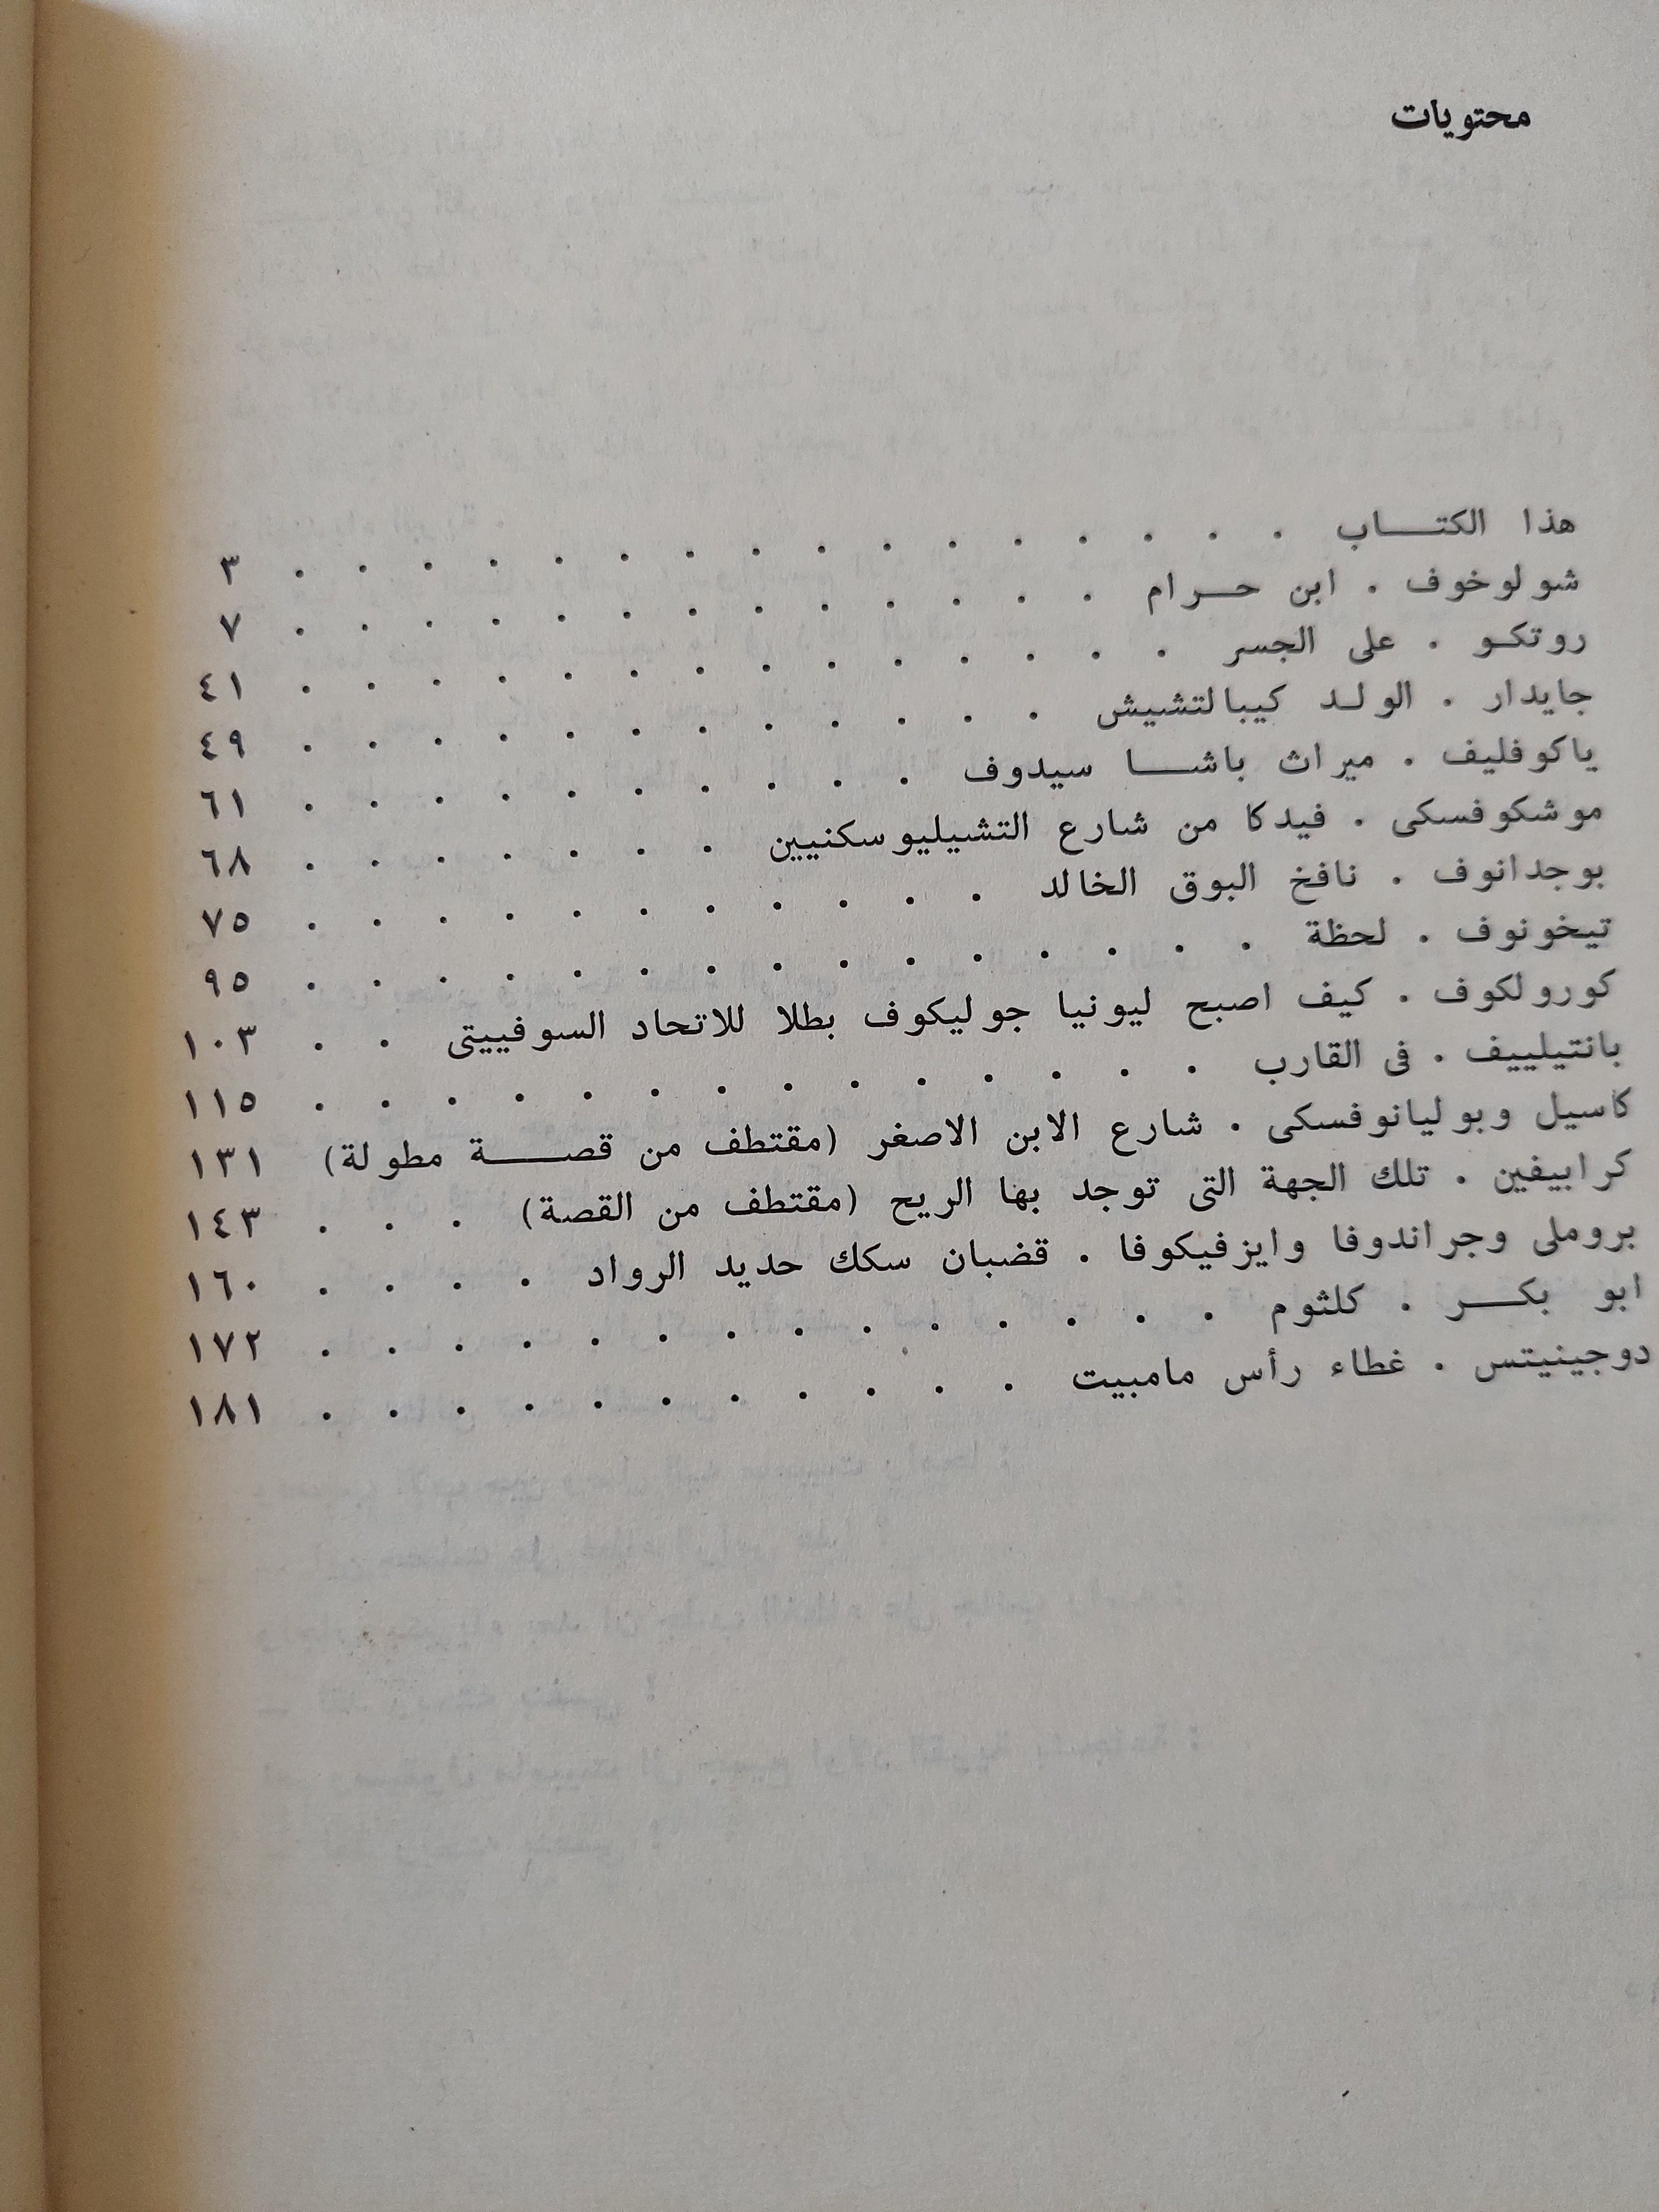 محتويات
هذا الكتـــاب . . . . . . . . . . . . . . . . ٣
شولوخوف . ابن حــرام . . . . . . . . . . . . . ٧
روتكـو . على الجسر . . . . . . . . . . . . . . ٤١
جايدار . الولـد كيبالتشيش . . . . . . . . . . . . ٤٩
ياكوفليف . ميراث باشـــا سيدوف . . . . . . . . . . ٦١
موشكوفسكى . فيدكا من شارع التشيليوسكنيين . . . . . . . ٦٨
بوجدانوف . نافخ البوق الخالد . . . . . . . . . . . ٧٥
تيخونوف . لحظة . . . . . . . . . . . . . . . ٩٥
كورولكوف . كيف اصبح ليونيا جوليكوف بطلا للاتحاد السوفييتى . . ١٠٣
بانتيلييف . فى القارب . . . . . . . . . . . . . . ١١٥
كاسيل وبوليانوفسكى . شارع الابن الاصغر (مقتطف من قصـــة مطولة) ١٣١
كرابيفين . تلك الجهة التى توجد بها الريح (مقتطف من القصة) . . . ١٤٣
بروملى وجراندوفا وايزفيكوفا . قضبان سكك حديد الرواد . . . . ١٦٠
ابو بكـــر . كلثوم . . . . . . . . . . . . . . ١٧٢
دوجينيتس . غطاء رأس مامبيت . . . . . . . . . . . ١٨١